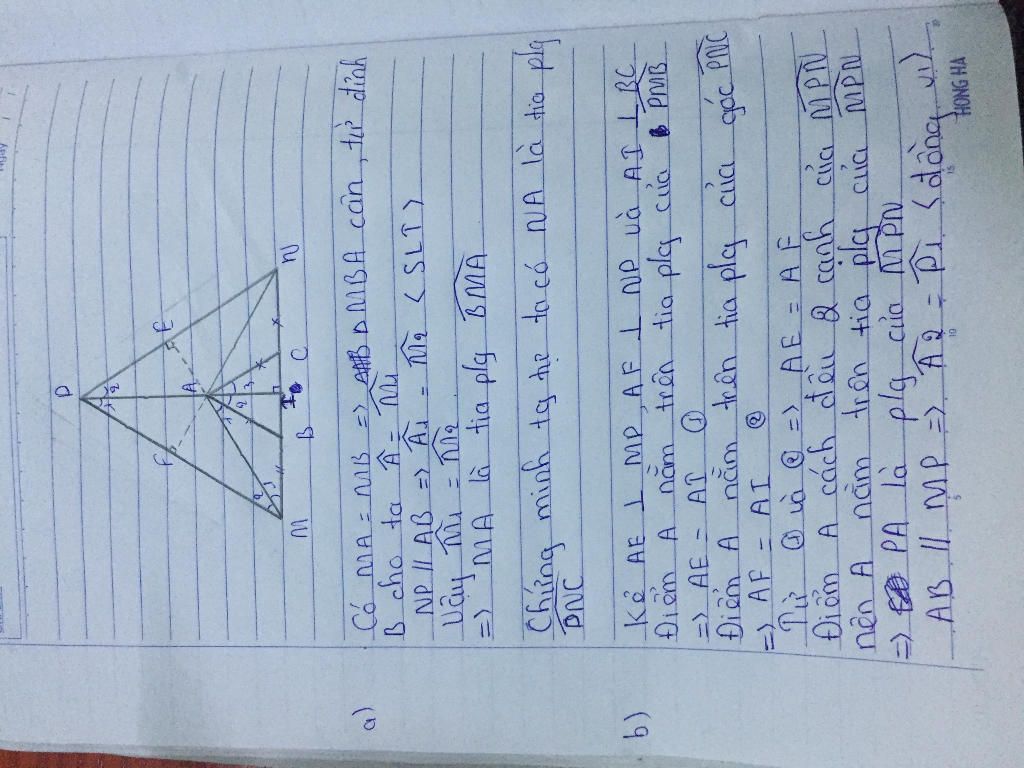 P
F
E
A
M
B
I
C
N
a) Có MA = MB => Δ MBA cân, từ đỉnh
B cho ta Â = M̂1
NP // AB => Â1 = M̂2 < SLT >
Vậy M̂1 = M̂2
=> MA là tia plg BMA
Chứng minh tg tự ta có NA là tia plg
PNC
b) Kẻ AE ⊥ MP, AF ⊥ NP và AI ⊥ BC
Điểm A nằm trên tia plg của PMB
=> AE = AI ①
Điểm A nằm trên tia plg của góc PNC
=> AF = AI ②
Từ ① và ② => AE = AF
Điểm A cách đều 2 cạnh của MPN
nên A nằm trên tia plg của MPN
=> PA là plg của MPN
AB // MP => Â2 = P̂1 < đồng vị >
HONG HA